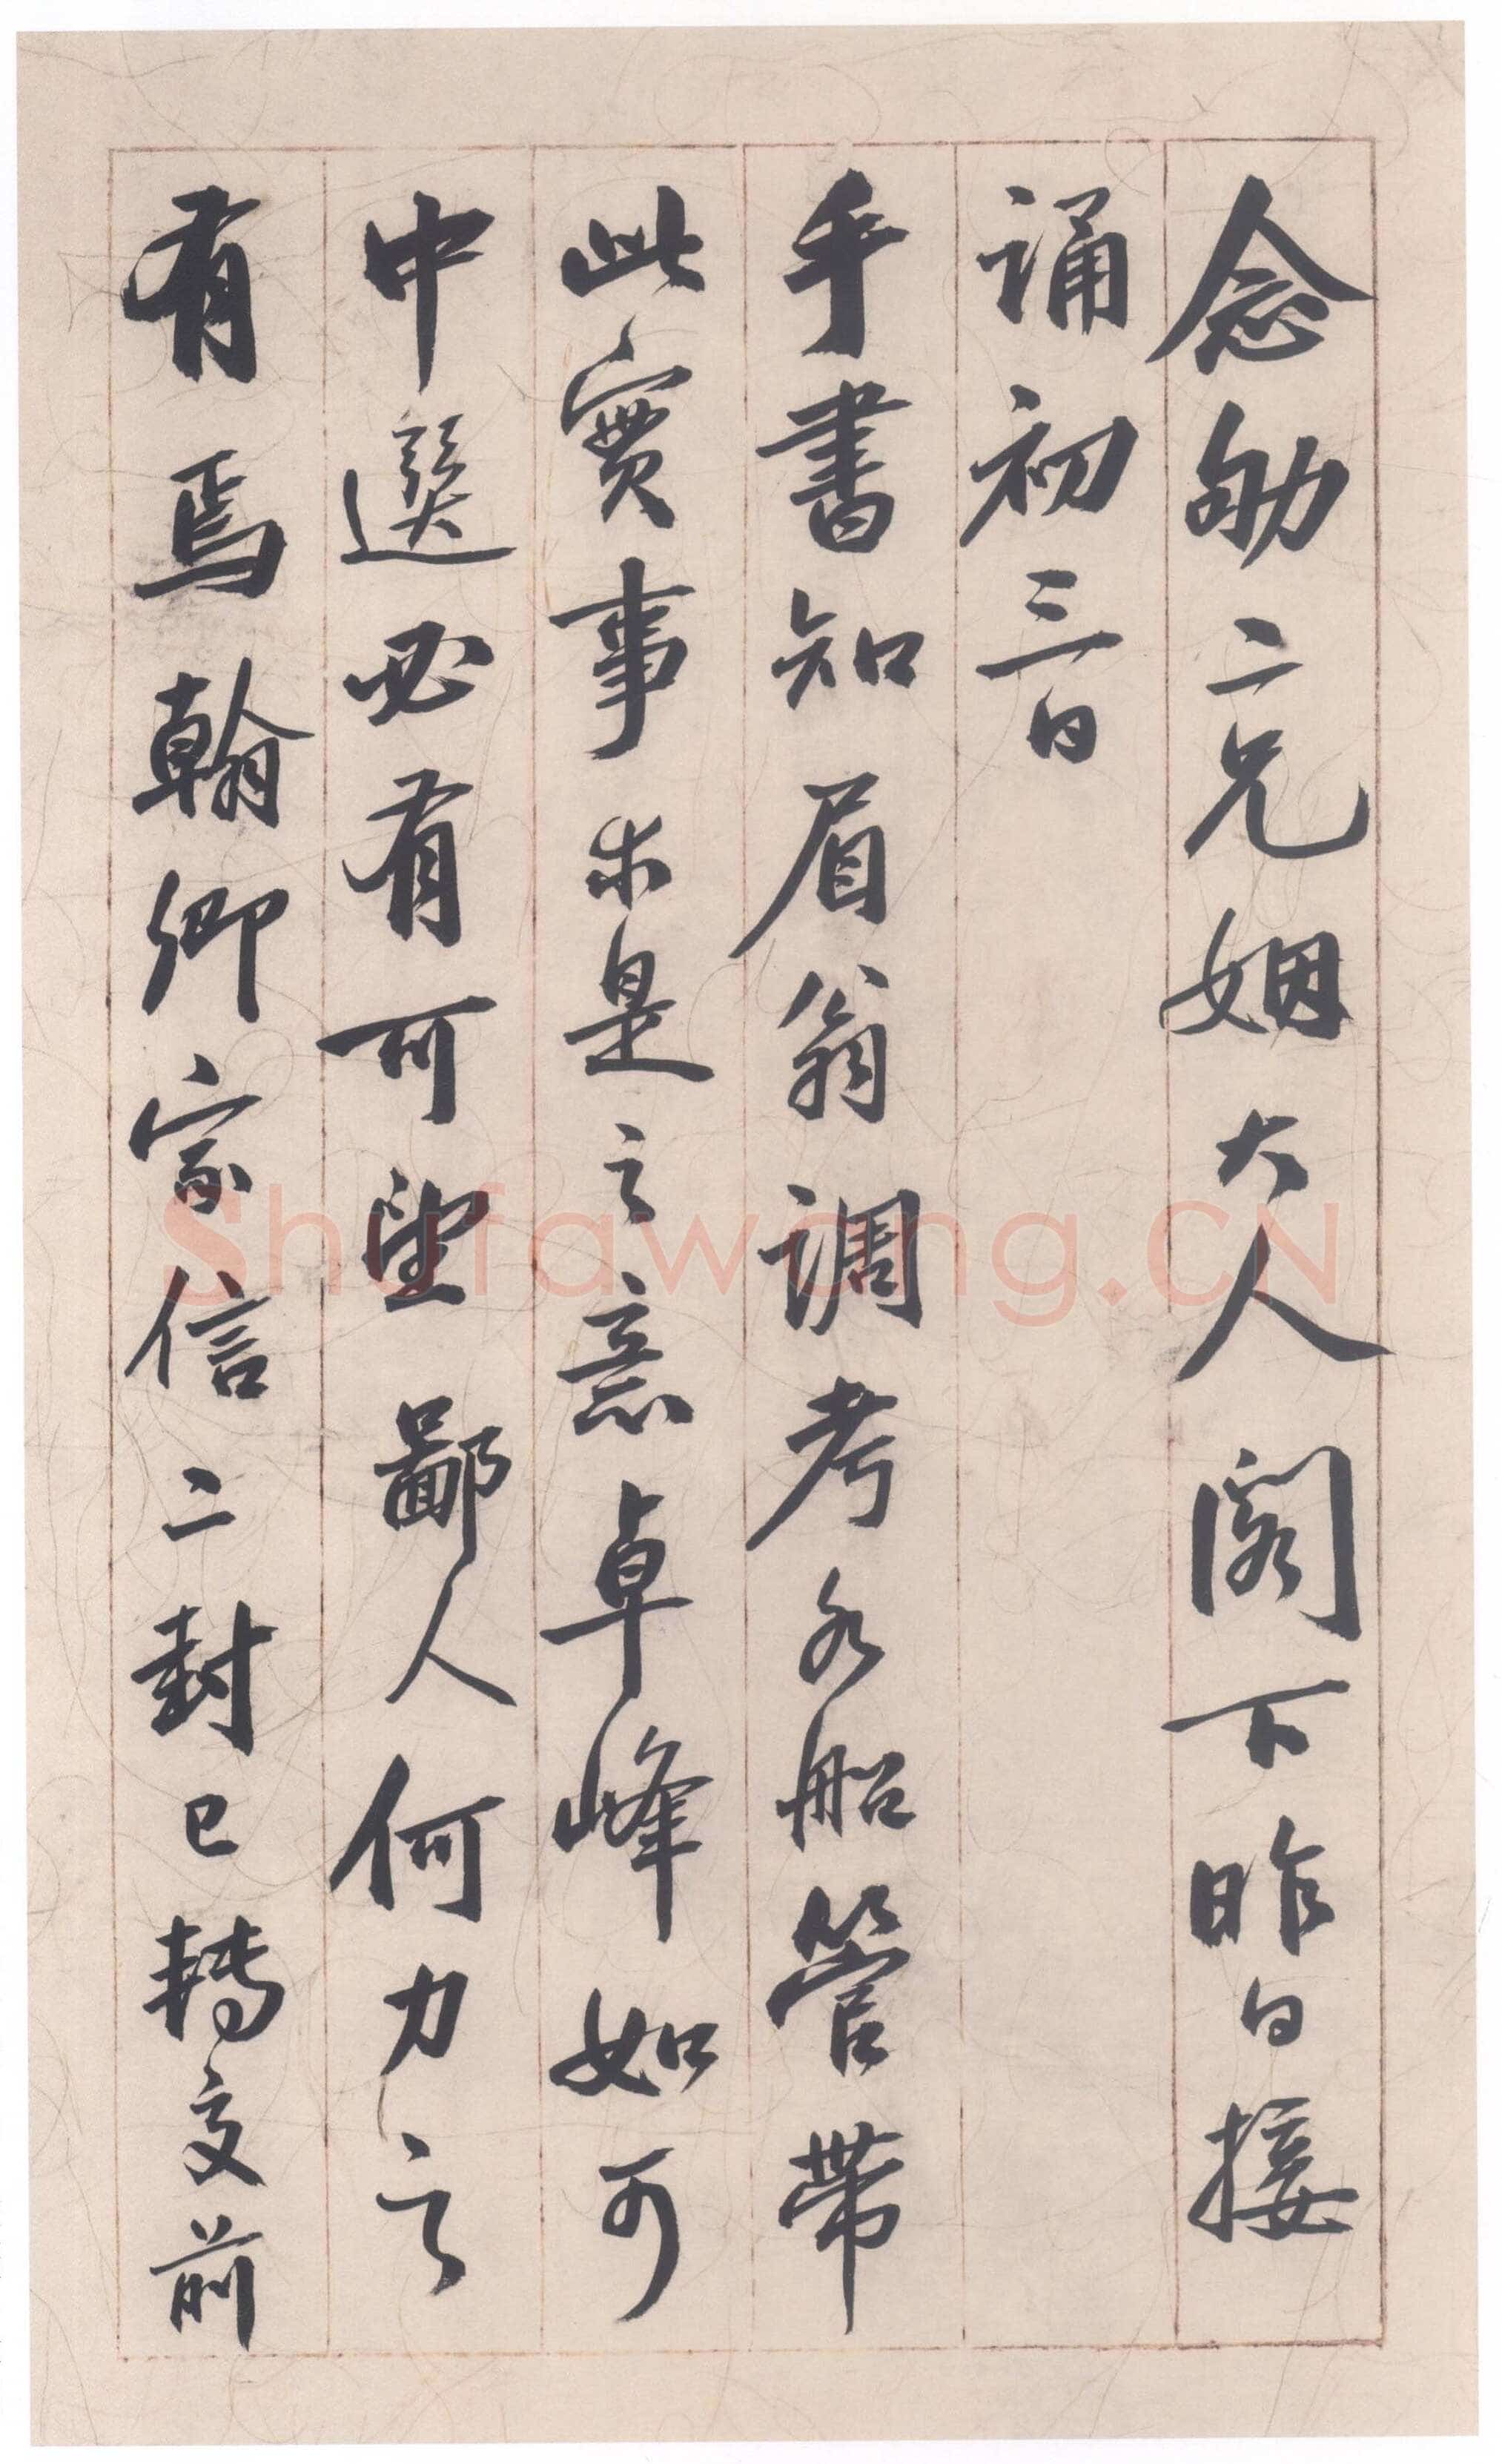 念劬二兄姻大人阁下昨日接
诵初三日
手書知眉翁调考水船管带
此實事求是之意卓峰如可
中選必有可望鄙人何力之
有焉翰卿家信二封已轉交前
Shufawang.CN